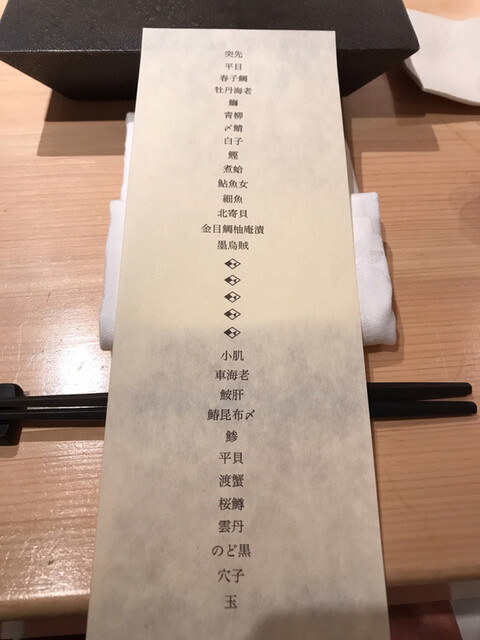 突先
平目
春子鯛
牡丹海老
鰤
青柳
〆鯖
白子
鰹
煮蛤
鮎魚女
細魚
北寄貝
金目鯛柚庵漬
墨烏賊
小肌
車海老
鮟肝
鰆昆布〆
鯵
平貝
渡蟹
桜鱒
雲丹
のど黒
穴子
玉